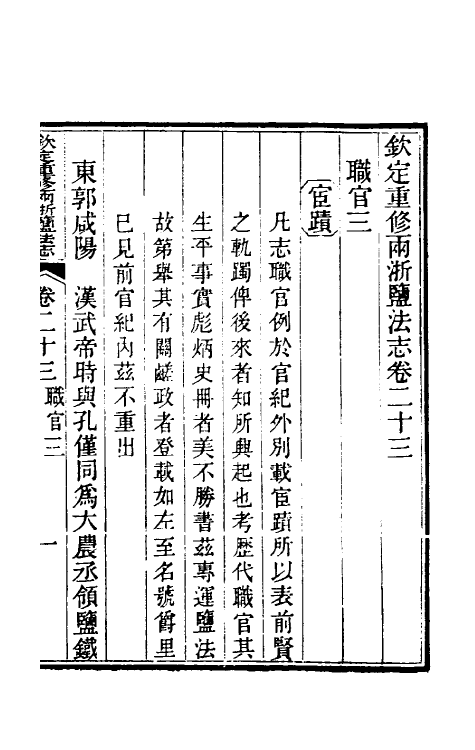 欽定重修兩浙鹽法志卷二十三
職官三
宦蹟
凡志職官例於官紀外別載宦蹟所以表前賢
之軌躅俾後來者知所興起也考歷代職官其
生平事實彪炳史冊者美不勝書茲專運鹽法
故第舉其有關鹺政者登載如左至名號爵里
已見前官紀內茲不重出
東郭咸陽　漢武帝時與孔僅同爲大農丞領鹽鐵
欽定重修兩浙鹽法志　卷二十三　職官三　一